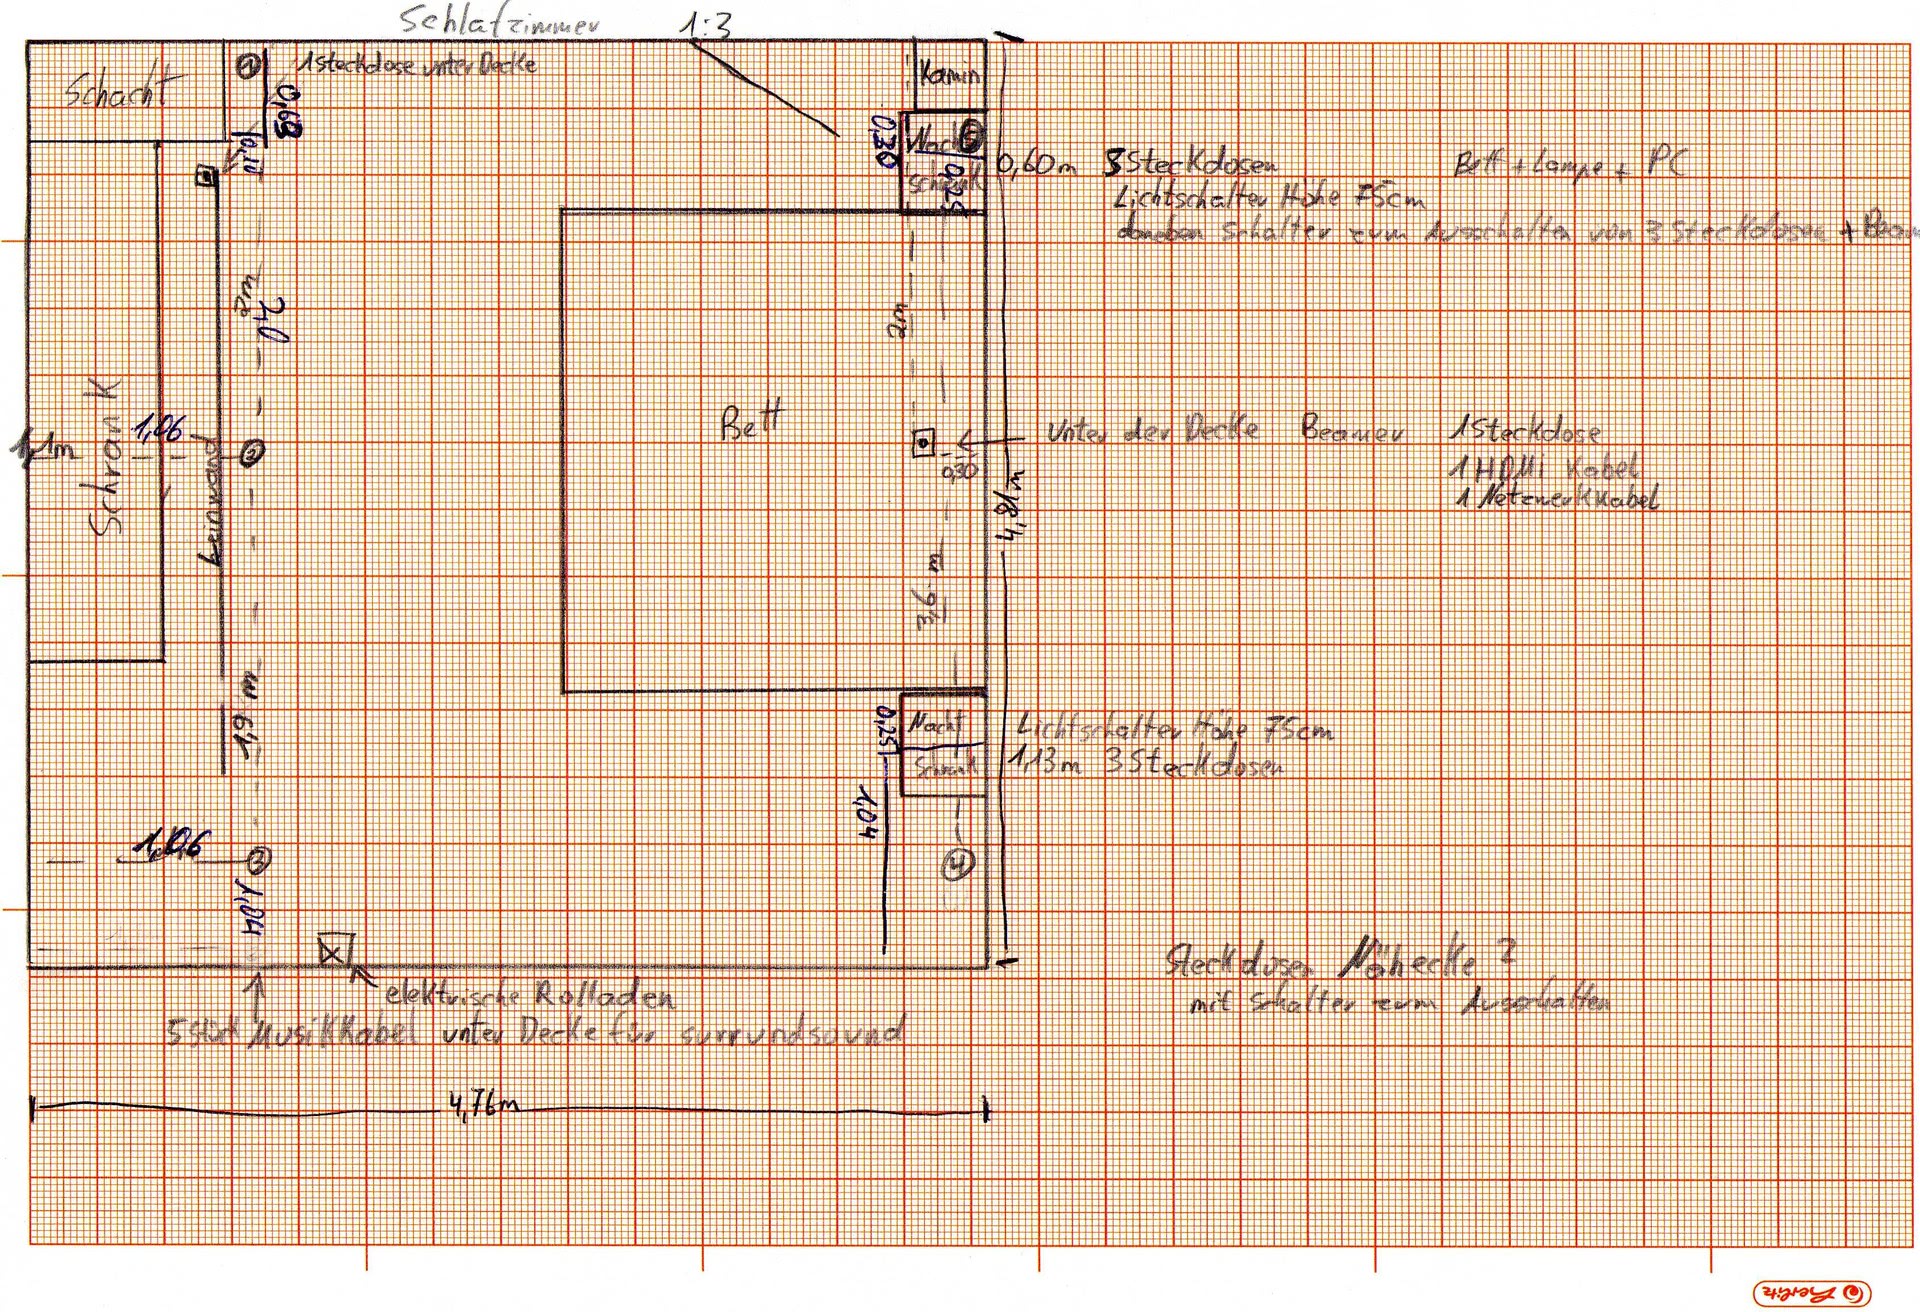 Schlafzimmer 1:3
Schacht
1
1 Steckdose unter Decke
0,63
0,10
Kamin
0,30
Nacht
schrank
5
0,25
0,60m 3 Steckdosen Bett + Lampe + PC
Lichtschalter Höhe 75cm
daneben Schalter zum Ausschalten von 3 Steckdosen + Beam
2m
2,0
2m
Schrank
1,06
1,1m
2
Leinwand
Bett
unter der Decke Beamer 1 Steckdose
1 HDMi Kabel
1 Netzwerkkabel
0,30
4,81m
3,6 m
1,9 m
0,25
Nacht
Schrank
Lichtschalter Höhe 75cm
1,13m 3 Steckdosen
1,04
1,06
3
4
1,04
elektrische Rolladen
5 Stück Musikkabel unter Decke für surrundsound
Steckdosen Nähecke?
mit Schalter zum Ausschalten
4,76m
Herlitz